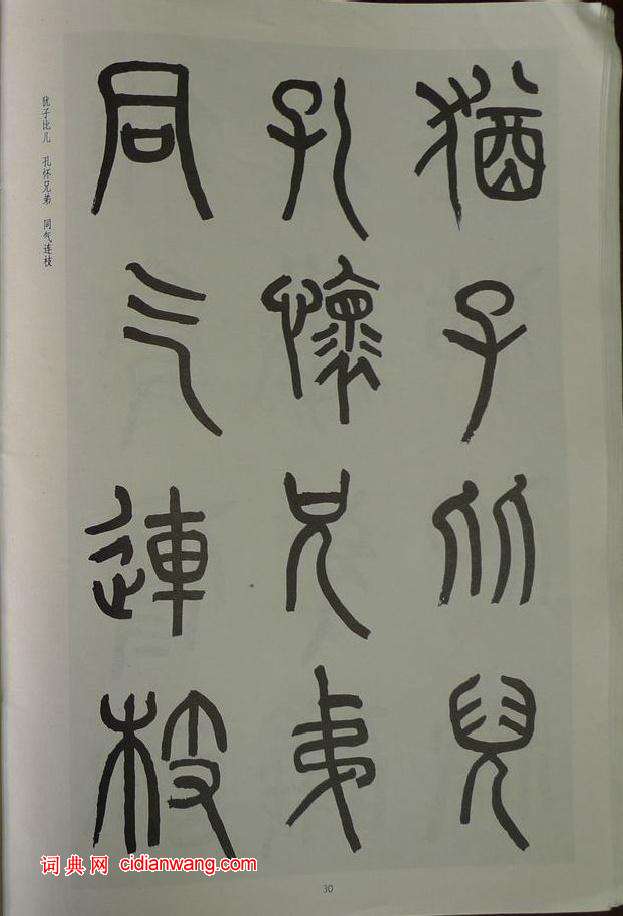 猶子比兒
孔懷兄弟
同气連枝
犹子比儿 孔怀兄弟 同气连枝
词典网 cidianwang.com
30